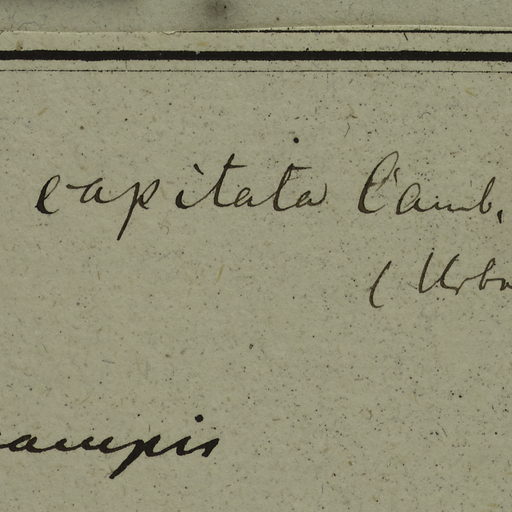 capitata Camb.
(Urba
campis